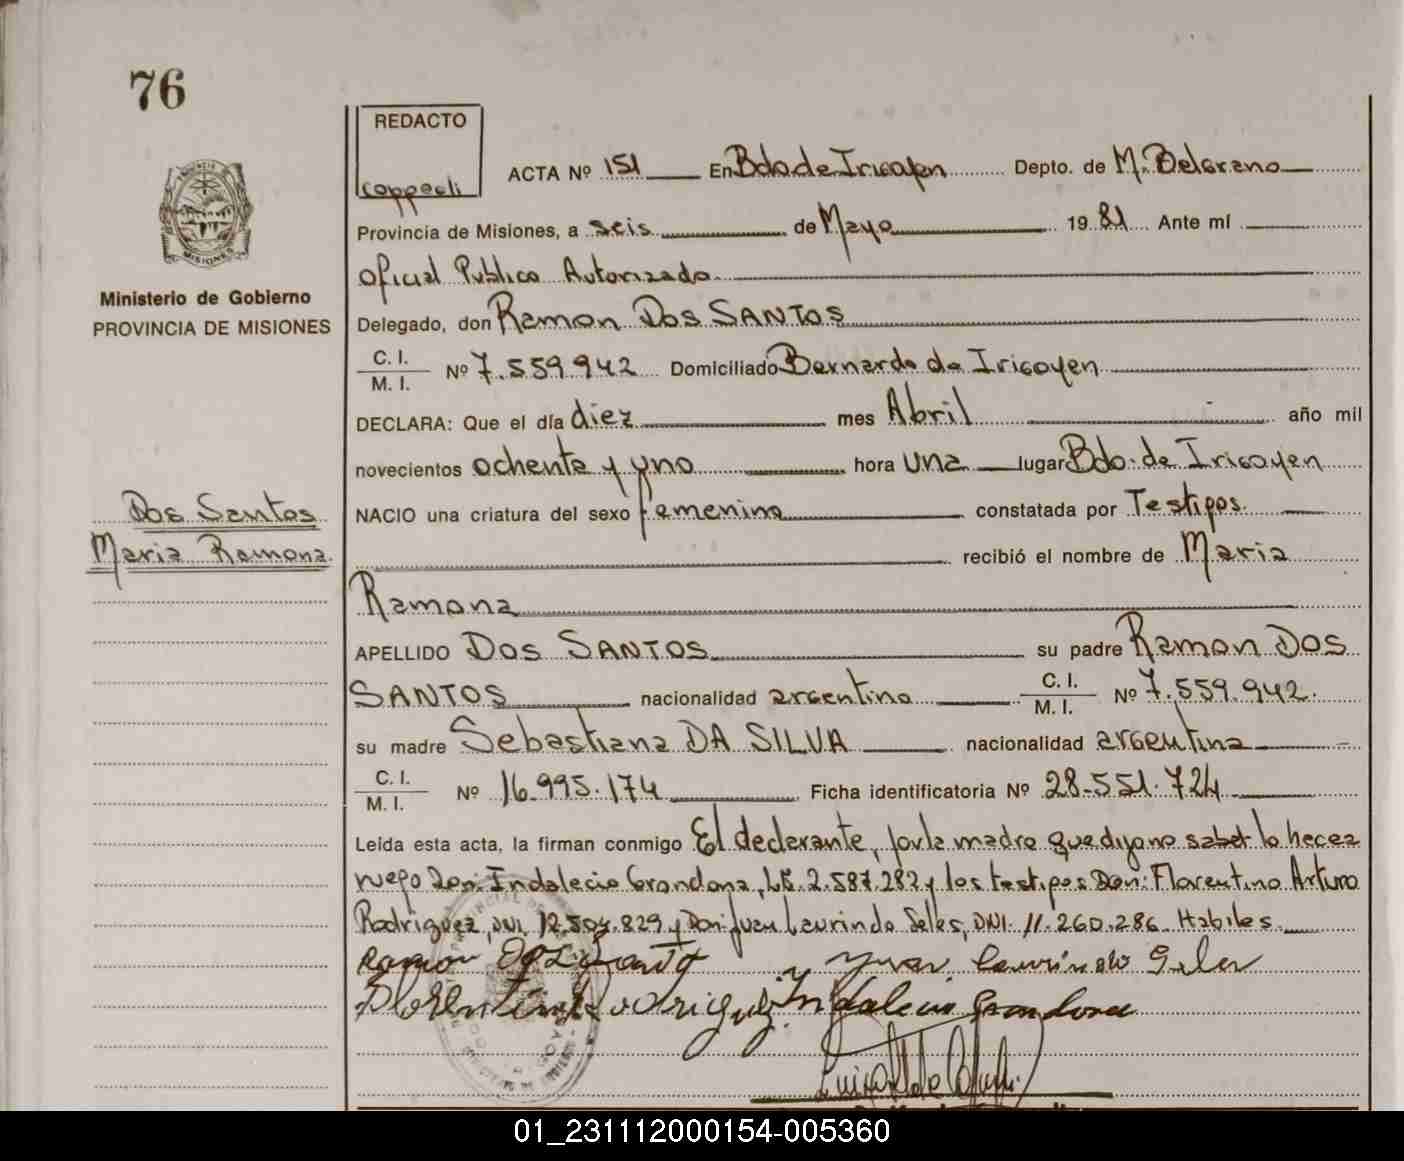 76
REDACTO
Coppoli
ACTA Nº 151 En Bdo de Irigoyen Depto. de M. Belgrano
Provincia de Misiones, a seis de Mayo 19 81 Ante mí
Oficial Publico Autorizado
MISIONES
Ministerio de Gobierno
PROVINCIA DE MISIONES
Delegado, don Ramon Dos SANTOS
C. I.
M. I. Nº 7.559.942 Domiciliado Bernardo de Irigoyen
DECLARA: Que el día diez mes Abril año mil
novecientos ochenta y uno hora una lugar Bdo. de Irigoyen
Dos Santos
Maria Ramona.
NACIO una criatura del sexo femenino constatada por Testigos
recibió el nombre de Maria
Ramona
APELLIDO Dos SANTOS su padre Ramon Dos
SANTOS nacionalidad argentino C. I. M. I. Nº 7.559.942.
su madre Sebastiana DA SILVA nacionalidad argentina
C. I.
M. I. Nº 16.995.174 Ficha identificatoria Nº 28.551.724
Leída esta acta, la firman conmigo El declarante, por la madre que dijo no saber lo hace a
ruego Don: Indalecio Grondona, LE. 2.587.282 y los testigos Don: Florentino Arturo
Rodriguez, DNI. 12.504.829 y Don: Juan Laurindo Seles, DNI. 11.260.286. Habiles.
Ramon Dos Santos y Juan Laurindo Seles
Florentino Rodriguez Indalecio Grondona
01_231112000154-005360